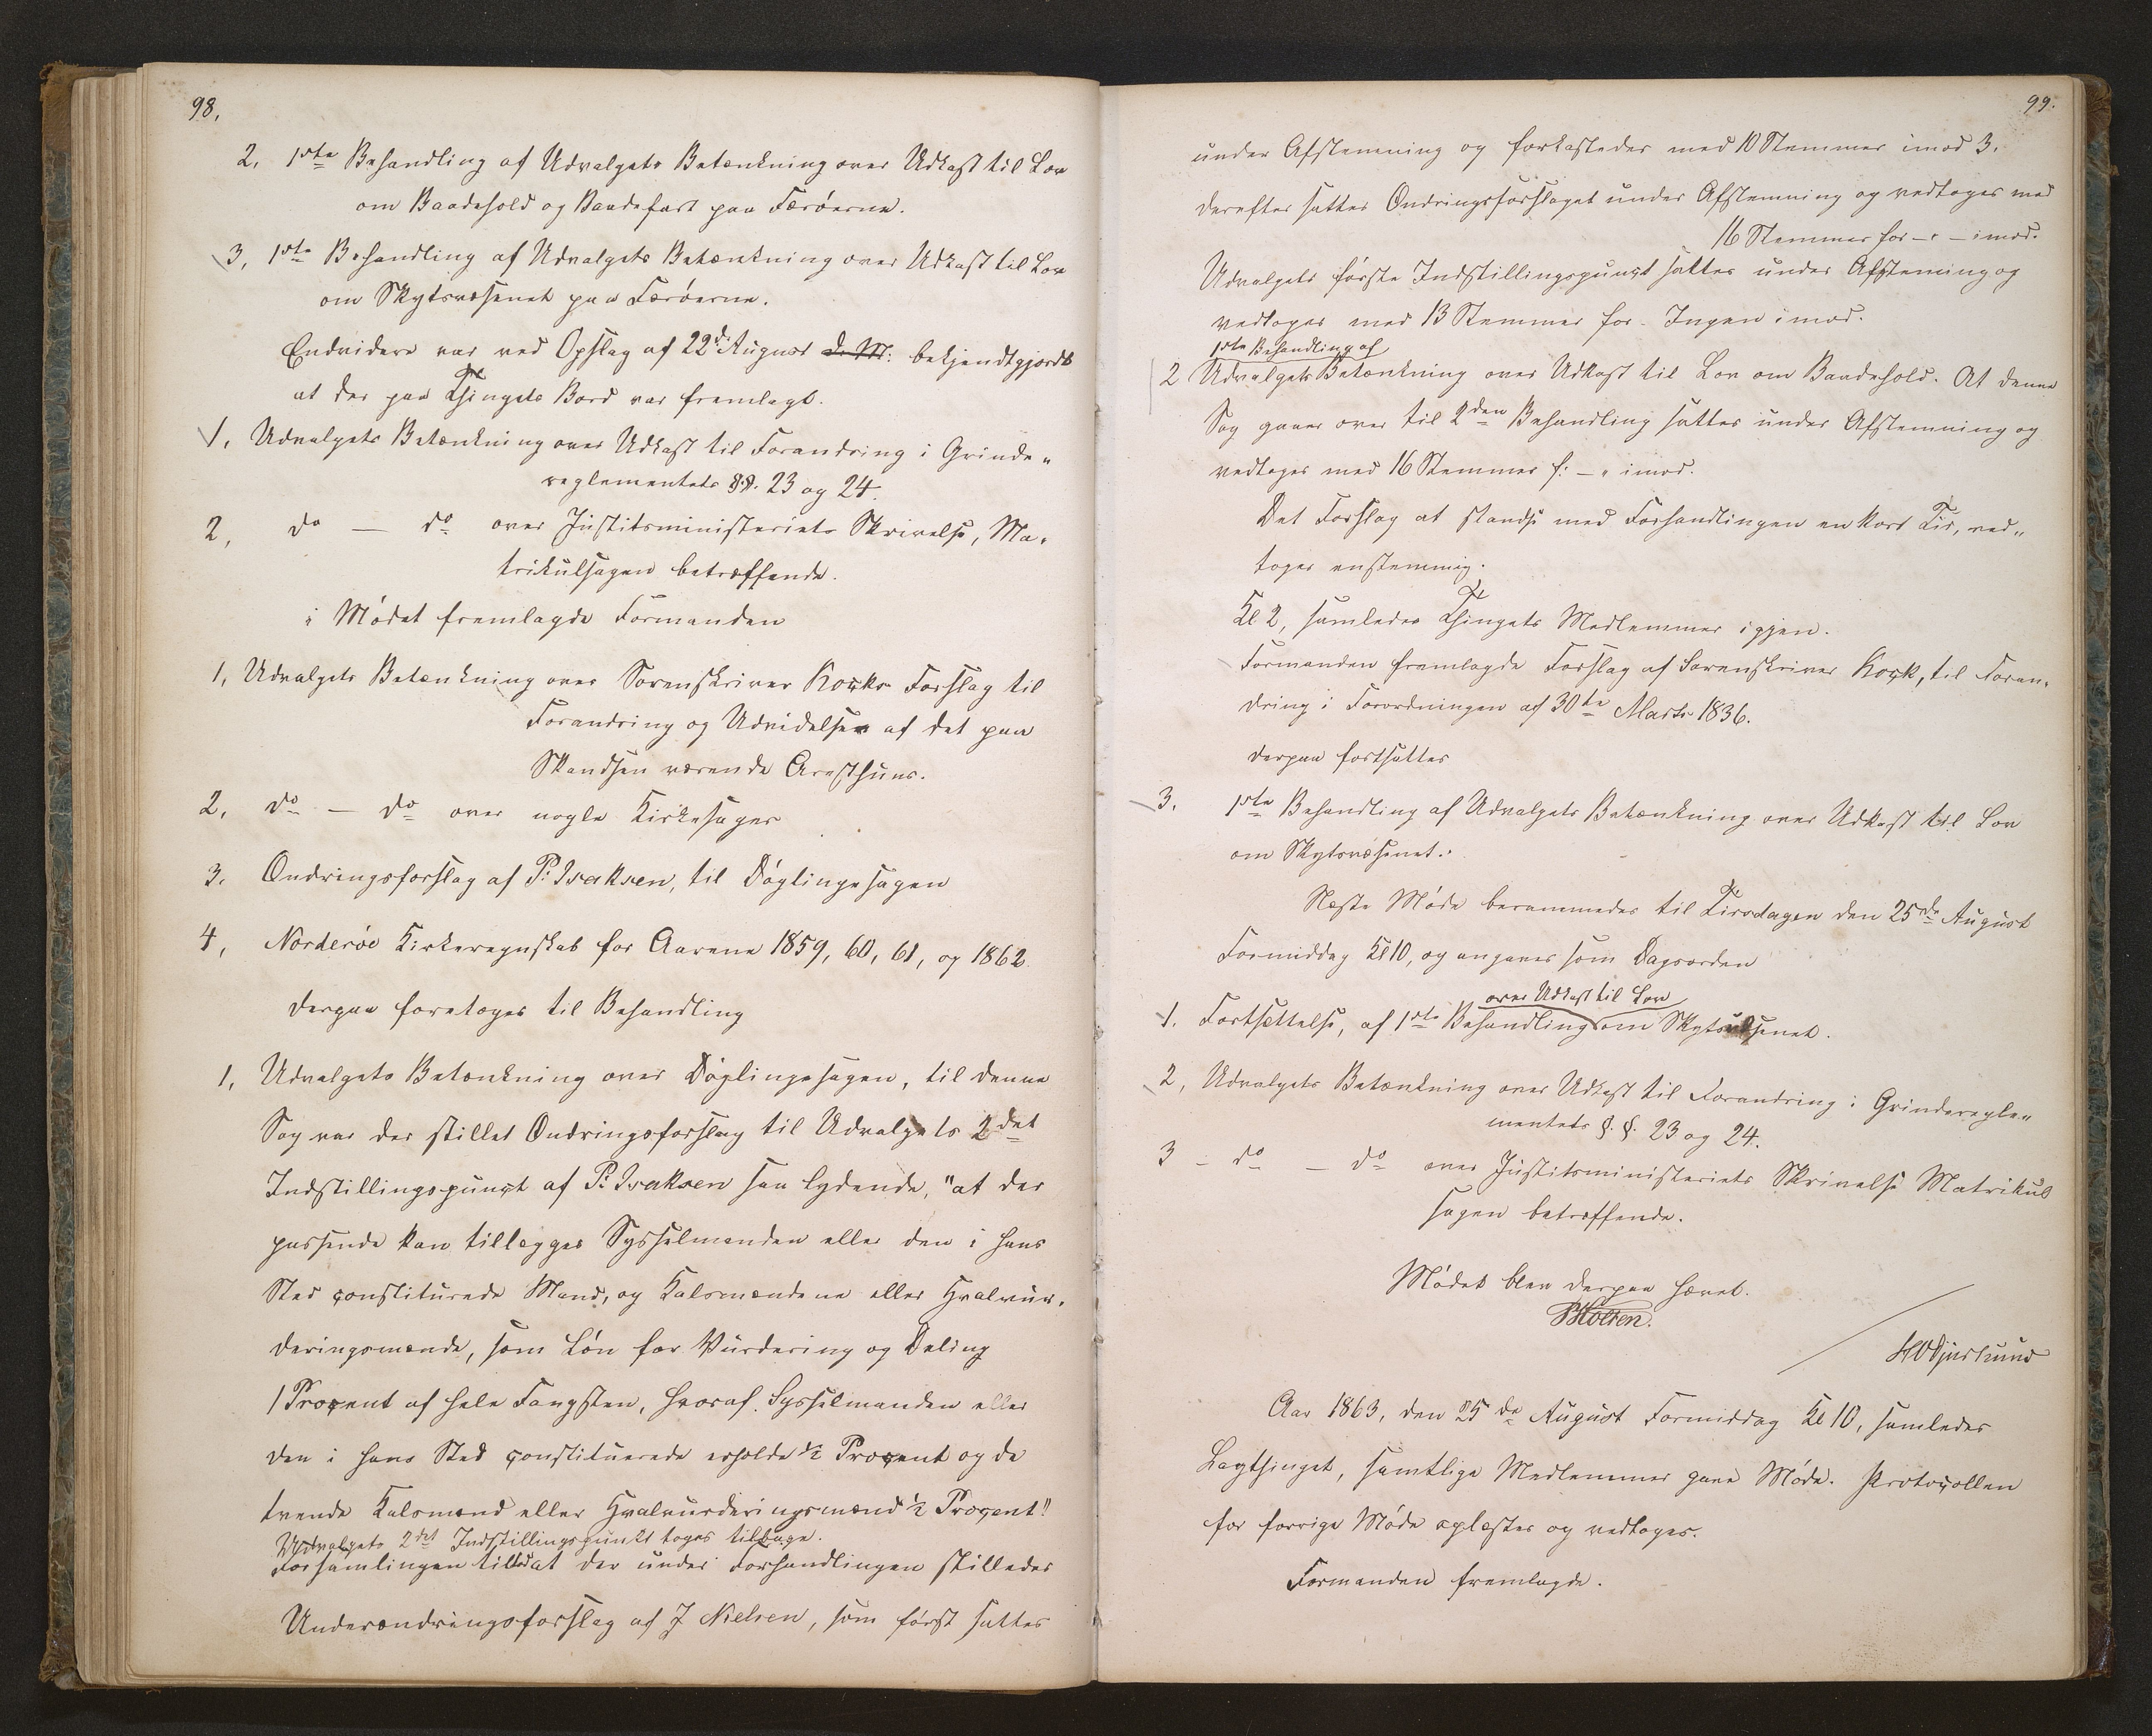 98.
2, 1ste Behandling af Udvalgets Betænkning over Udkast til Lov
om Baadehold og Baadefart paa Færøerne.
3, 1ste Behandling af Udvalgets Betænkning over Udkast til Lov
om Skytsvæsenet paa Færøerne.
Endvidere var ved Opslag af 22d August d. M. bekjendtgjordt
at der paa Thingets Bord var fremlagt.
1, Udvalgets Betænkning over Udkast til Forandring i Grinde„
reglementets §.§. 23 og 24.
2, do — do over Justitsministeriets Skrivelse, Ma„
trikulsagen betræffende.
i Mødet fremlagde Formanden
1, Udvalgets Betænkning over Sorenskriver Kocks Forslag til
Forandring og Udvidelsen af det paa
Skandsen værende Aresthuus.
2, do — do over nogle Kirkesager
3. Ændringsforslag af P. Isaksen, til Døglingesagen
4, Norderøe Kirkeregnskab for Aarene 1859, 60, 61, og 1862
Derpaa foretoges til Behandling
1, Udvalgets Betænkning over Døglingesagen, til denne
Sag var der stillet Ændringsforslag til Udvalgets 2det
Indstillingspunct af P. Isaksen saa lydende, "at der
passende kan tillægges Sysselmanden eller den i hans
Sted constiturede Mand, og Kalsmændene eller Hvalvur„
deringsmænde, som Løn for Vurdering og Deling
1 Procent af hele Fangsten, hvoraf Sysselmanden eller
den i hans Sted constituerede erholde ½ Procent og de
tvende Kalsmænd eller Hvalvurderingsmænd ½ Procent"
Udvalgets 2det Indstillingspunkt toges tilbage.
Forsamlingen tillod at der under Forhandlingen stilledes
Underændringsforslag af J Nielsen, som først sattes
99.
under Afstemning og forkastedes med 10 Stemmer imod 3.
Derefter sattes Ændringsforslaget under Afstemning og vedtoges med
16 Stemmer for — " — imod.
Udvalgets første Indstillingspunct sattes under Afstemning og
vedtoges med 13 Stemmer for. Ingen imod.
1ste Behandling af
2 Udvalgets Betænkning over Udkast til Lov om Baadehold. At denne
Sag gaaer over til 2den Behandling sattes under Afstemning og
vedtoges med 16 Stemmer f: — " imod.
Det Forslag at standse med Forhandlingen en kort Tid, ved„
toges enstemmig.
Kl 2, samledes Thingets Medlemmer igjen.
Formanden fremlagde Forslag af Sorenskriver Kock, til Foran„
dring i Forordningen af 30te Marts 1836.
Derpaa fortsattes
3. 1ste Behandling af Udvalgets Betænkning over Udkast til Lov
om Skytsvæsenet.
Næste Møde berammedes til Tirsdagen den 25de August
Formiddag Kl 10, og angaves som Dagsorden
over Udkast til Lov
1. Fortsættelse, af 1ste Behandling om Skytsvæsenet.
2, Udvalgets Betænkning over Udkast til Forandring i Grinderegle„
mentets §. §. 23 og 24.
3 – do – do over Justitsministeriets Skrivelse Matrikul
sagen betræffende.
Mødet blev derpaa hævet.
Holten.
HODjurhuus
Aar 1863, den 25de August Formiddag Kl 10, samledes
Lagthinget, samtlige Medlemmer gave Møde. Protocollen
for forrige Møde oplæstes og vedtoges.
Formanden fremlagde.